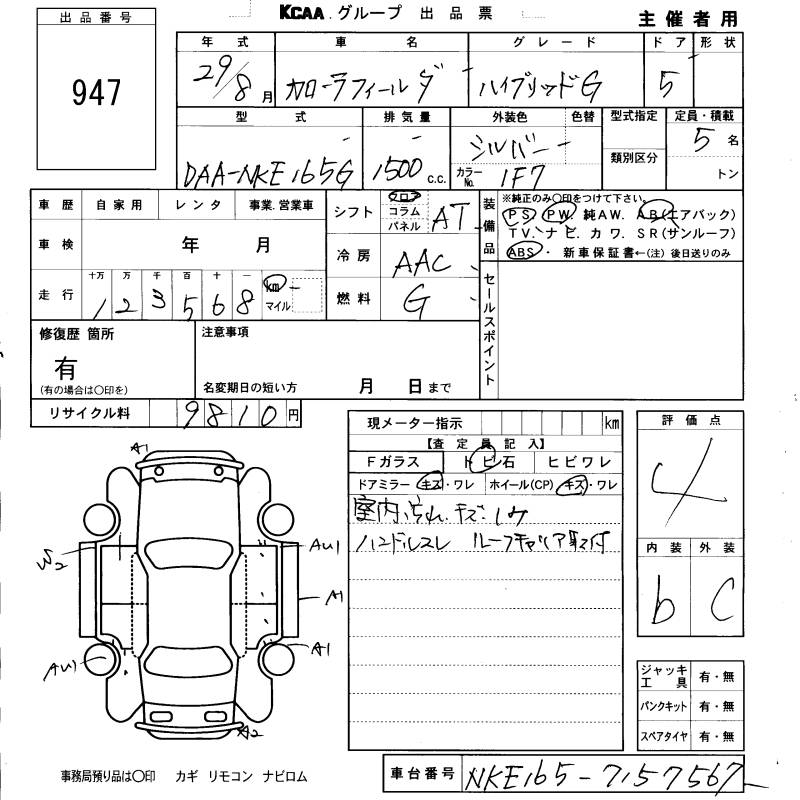 KCAA.グループ 出品票
主催者用
出品番号
947
年式 車名 グレード ドア 形状
29/8月 カローラフィールダー ハイブリッドG 5
型式 排気量 外装色 色替 型式指定 定員・積載
DAA-NKE165G 1500 c.c. シルバー 5名
カラーNo. 1F7 類別区分 トン
車歴 自家用 レンタ 事業.営業車
シフト フロア コラム パネル AT
装備品 ※純正のみ〇印をつけて下さい。
PS PW 純AW. AB(エアバック)
TV. ナビ. カワ. SR(サンルーフ)
ABS・ 新車保証書←(注) 後日送りのみ
車検 年 月
冷房 AAC
走行 十万 万 千 百 十 一 km マイル
1 2 3 5 6 8
燃料 G
セールスポイント
修復歴 箇所
有
(有の場合は〇印を)
注意事項
名変期日の短い方 月 日まで
リサイクル料 9810円
現メーター指示 km
【査定員記入】
Fガラス トビ石 ヒビワレ
ドアミラー キズ・ワレ ホイール(CP) キズ・ワレ
室内 汚れ.キズ.シワ
ハンドルスレ ルーフキャリア取付
評価点
4
内装 外装
b C
A1
W2
AU1
A1
A1
AU1
A2
ジャッキ工具 有・無
パンクキット 有・無
スペアタイヤ 有・無
事務局預り品は〇印 カギ リモコン ナビロム
車台番号 NKE165-7157567